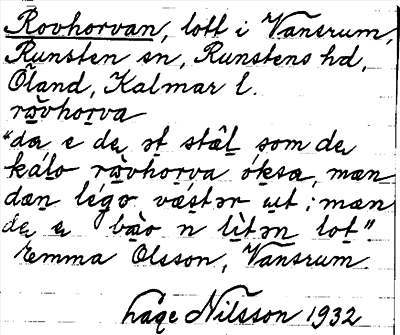 Rovhorvan, lott i Vansrum,
Runsten sn, Runstens hd,
Öland, Kalmar l.
rå̀vhorva
"da e de ət stäl̄ som de
kálo rå̀vhorva óksa, mæn
dæn légo vǽstər ut; mæn
de e bào n lìtən lot"
Emma Olsson, Vansrum.
Håge Nilsson 1932